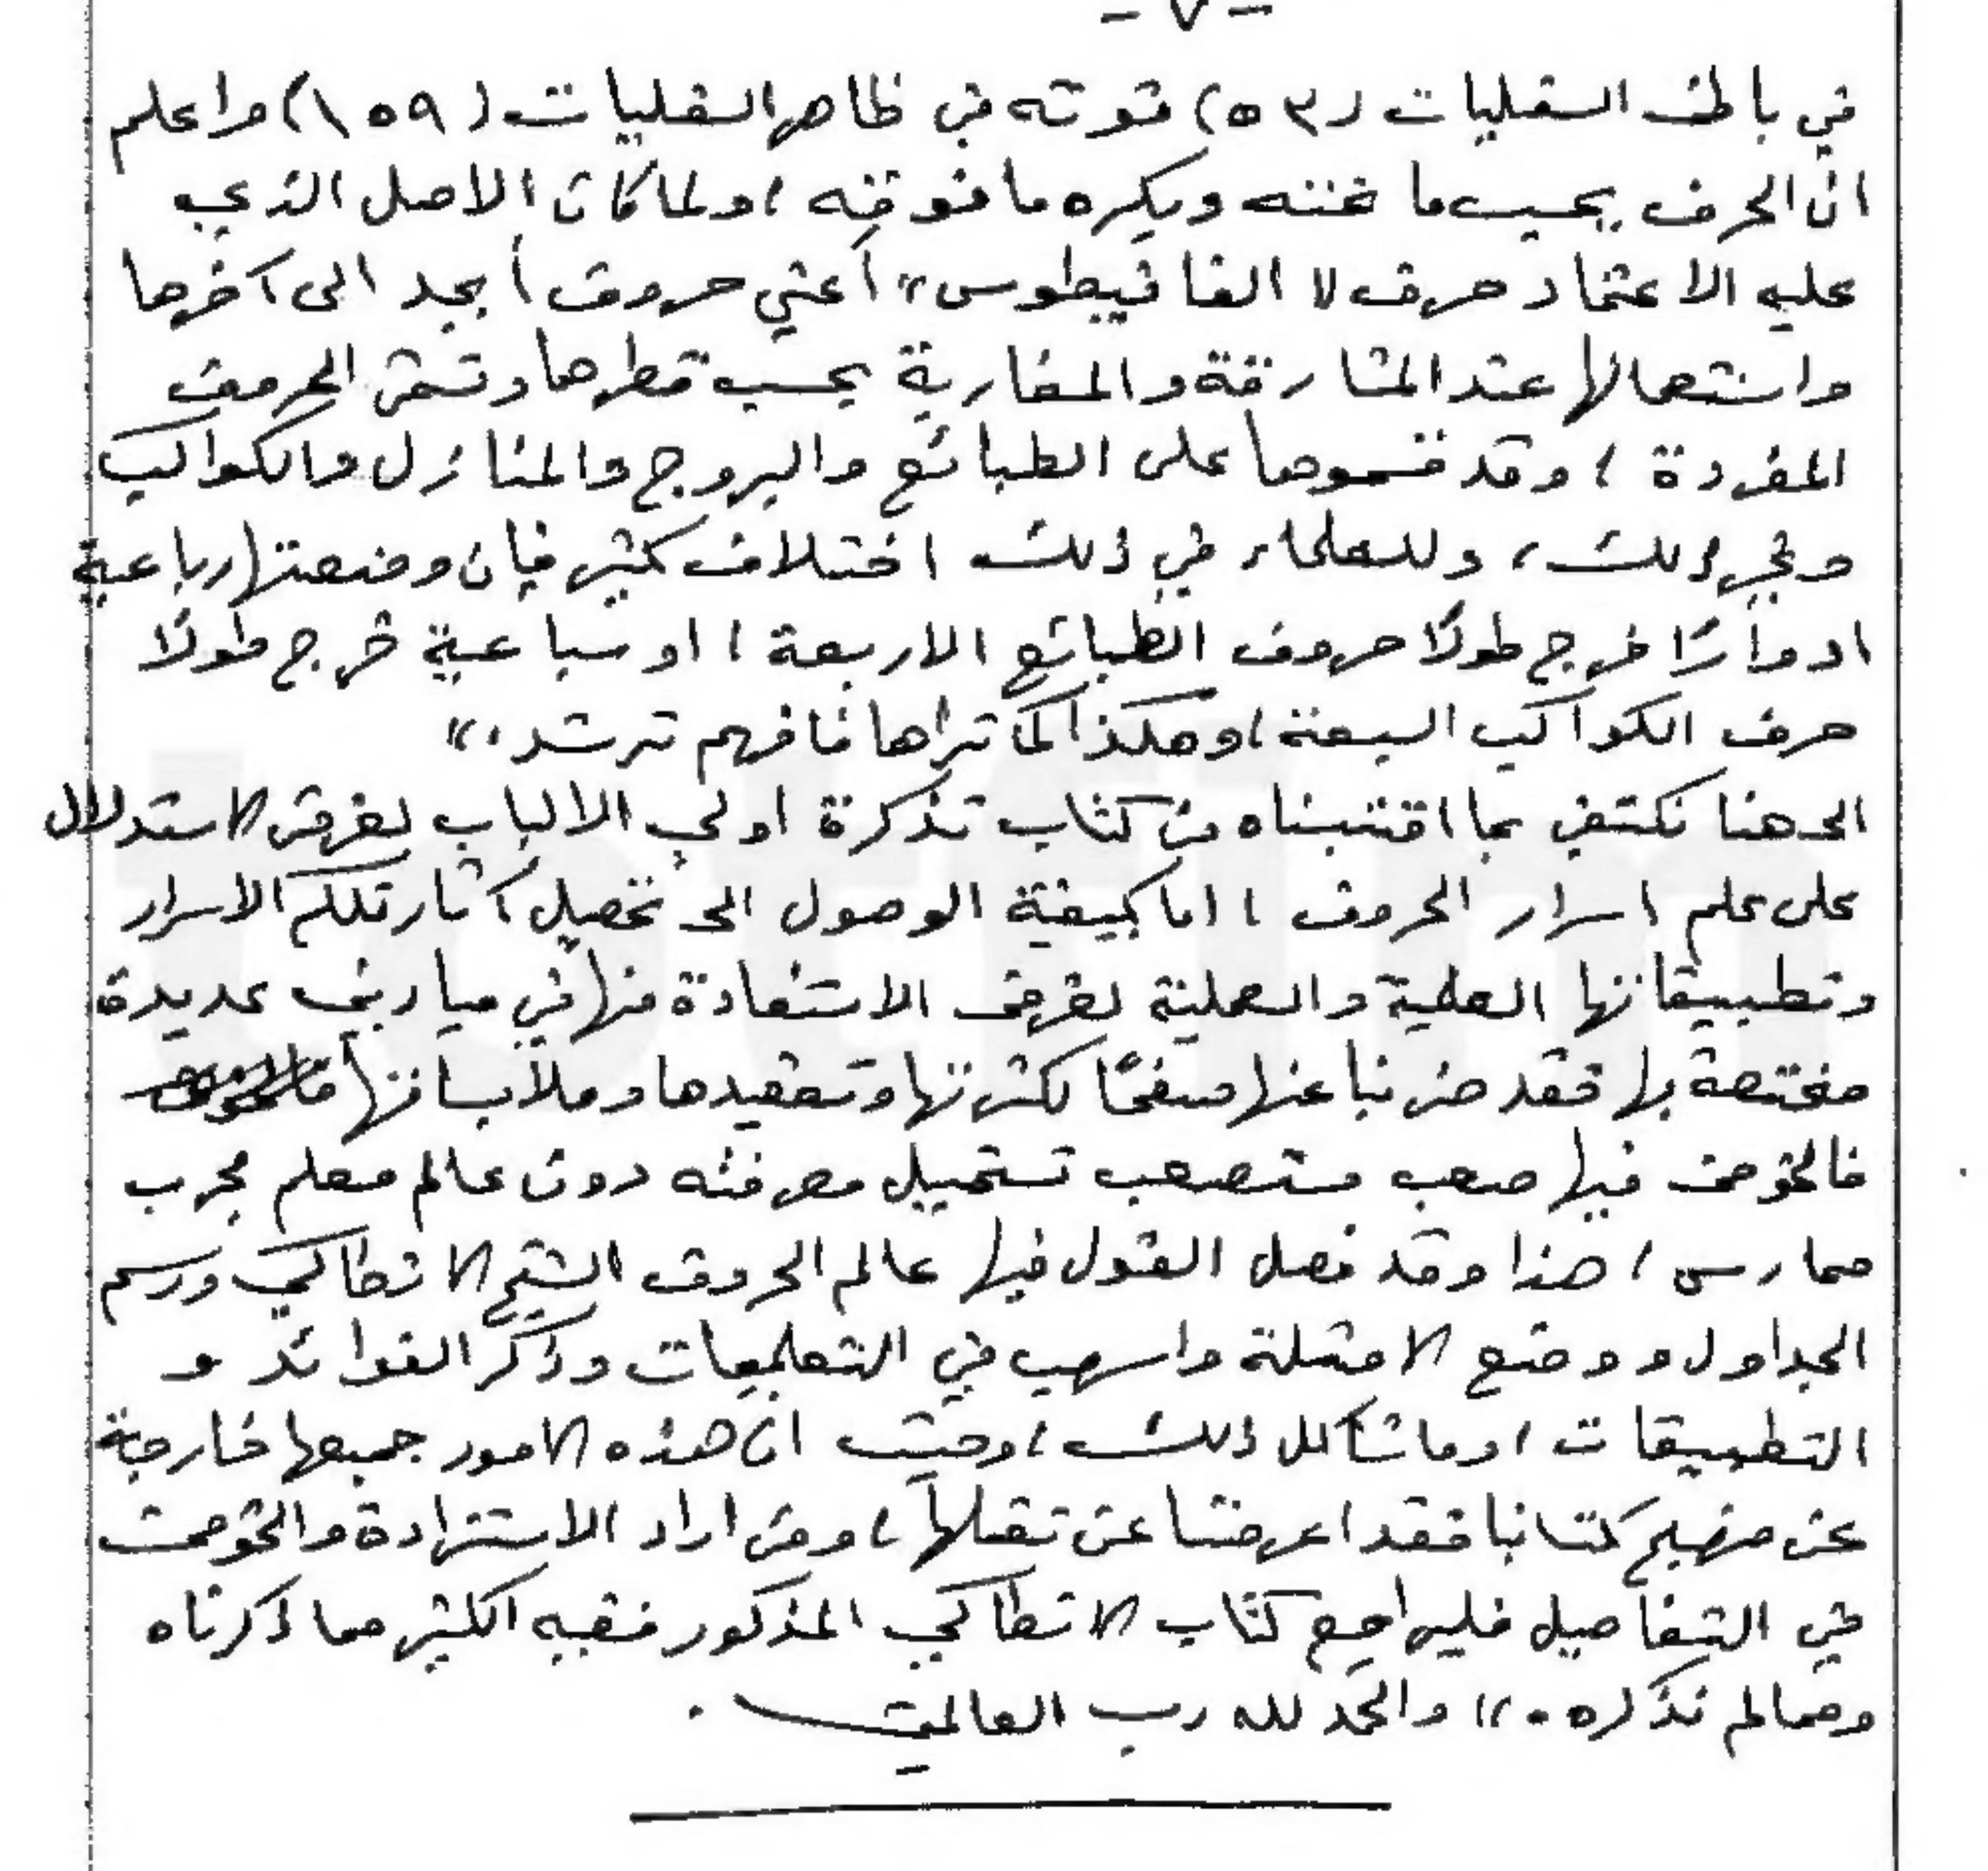 - ٧ -
في باطن السفليات (٥٣) قوته في ظاهر السفليات (١٥٩) واعلم
ان الحرف يحب ما تحته ويكره ما فوقه، ولما كان الاصل الذي
عليه الاعتماد حرف " الفافيطوس" أعني حروف ابجد الى آخرها
واستعمالها عند المشارقة والمغاربة بحسب قطرها وتسمى الحروف
المفردة، وقد قسموها على الطبائع والبروج والمنازل والكواكب
وغير ذلك، وللعلماء في ذلك اختلاف كثير فإن وضعتها رباعية
ادوارًا خرج طولًا حروف الطبائع الاربعة، او سباعية خرج طولًا
حرف الكواكب السبعة، وهكذا كما تراها فافهم ترشد."
الى هنا نكتفي بما اقتبسناه من كتاب تذكرة اولي الالباب لغرض الاستدلال
على علم اسرار الحروف، اما كيفية الوصول الى تحصيل آثار تلكم الاسرار
وتطبيقاتها العلمية والعملية لغرض الاستفادة منها في ميادين عديدة
مختصة بها فقد ضربنا عنها صفحًا لكثرتها وتعقيدها وملابساتها
فالخوض فيها صعب مستصعب تستحيل معرفته دون عالم معلم مجرب
ممارس، هذا وقد فصل القول فيها عالم الحروف الشيخ الانطاكي ورسم
الجداول ووضع الامثلة واسهب في التعليمات وذكر الفوائد و
التطبيقات، وما شاكل ذلك، وحيث ان هذه الامور جميعها خارجة
عن منهج كتابنا فقد اعرضنا عن نقلها، ومن اراد الاستزادة والخوض
في التفاصيل فليراجع كتاب الانطاكي المذكور ففيه الكثير مما ذكرناه
ومما لم نذكره." والحمد لله رب العالمين.